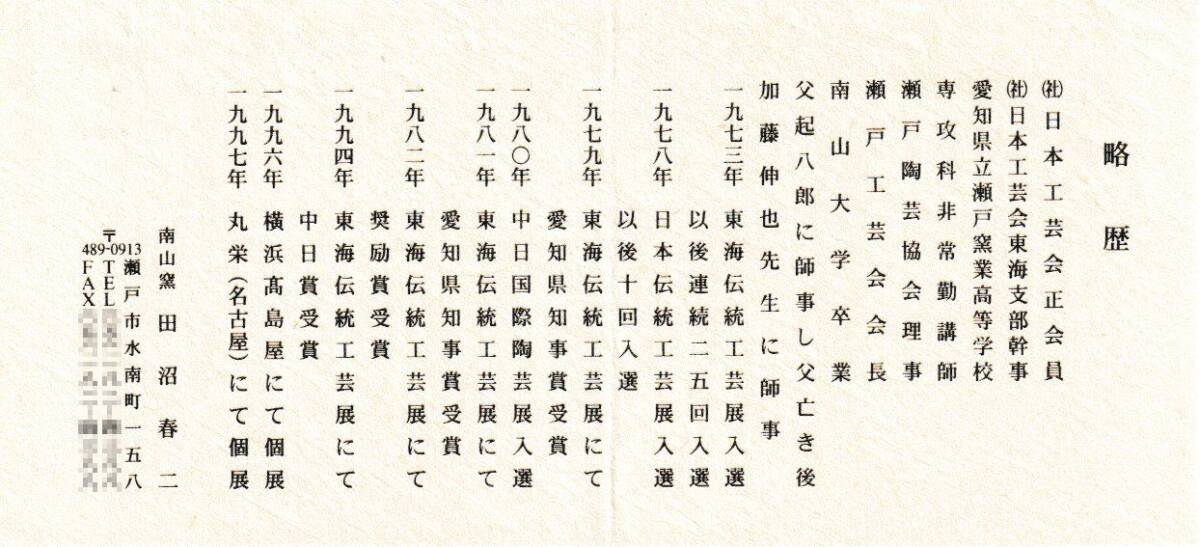 略歴
㈳日本工芸会正会員
㈳日本工芸会東海支部幹事
愛知県立瀬戸窯業高等学校
専攻科非常勤講師
瀬戸陶芸協会理事
瀬戸工芸会会長
南山大学卒業
父起八郎に師事し父亡き後
加藤伸也先生に師事
一九七三年 東海伝統工芸展入選
以後連続二五回入選
一九七八年 日本伝統工芸展入選
以後十回入選
一九七九年 東海伝統工芸展にて
愛知県知事賞受賞
一九八〇年 中日国際陶芸展入選
一九八一年 東海伝統工芸展にて
愛知県知事賞受賞
一九八二年 東海伝統工芸展にて
奨励賞受賞
一九九四年 東海伝統工芸展にて
中日賞受賞
一九九六年 横浜髙島屋にて個展
一九九七年 丸栄(名古屋)にて個展
南山窯 田沼春二
〒489-0913 瀬戸市水南町一五八
TEL
FAX